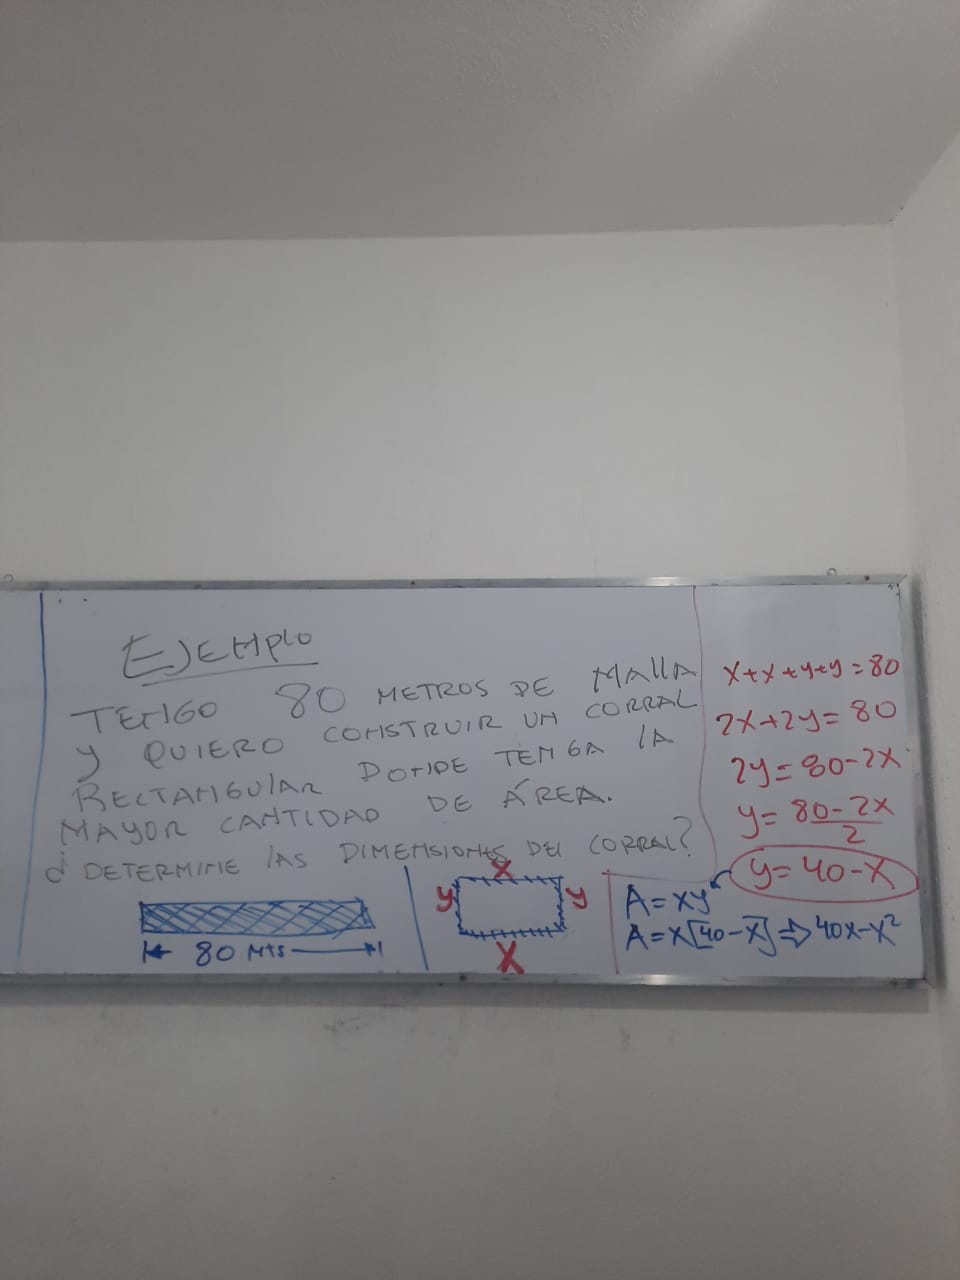 EJEMPLO
TENGO 80 METROS DE MALLA
Y QUIERO CONSTRUIR UN CORRAL
RECTANGULAR DONDE TENGA LA
MAYOR CANTIDAD DE ÁREA.
DETERMINE LAS DIMENSIONES DEL CORRAL?
80 MTS
X
y y
X
X+X+y+y=80
2X+2y=80
2y=80-2X
y=80-2X/2
y=40-X
A=Xy
A=X[40-X]⇒40X-X²